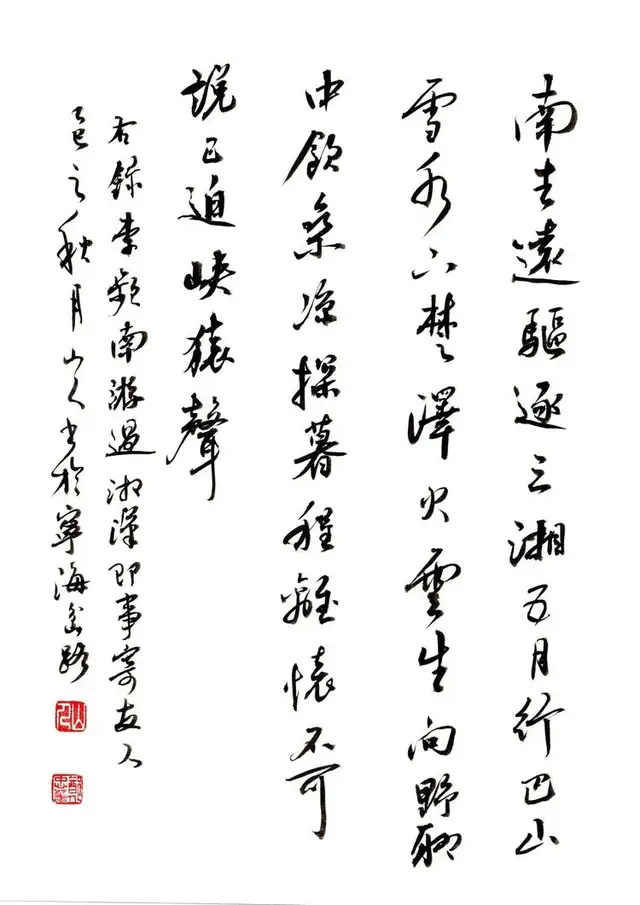 南去遠驅逐三湘五月行巴山
雪水下楚澤火雲生向野聊
中飲乘涼探暮程離懷不可
說已迫峽猿聲
右錄李頻南游過湘漢即事寄友人
乙巳之秋月山人書於寧海岔路